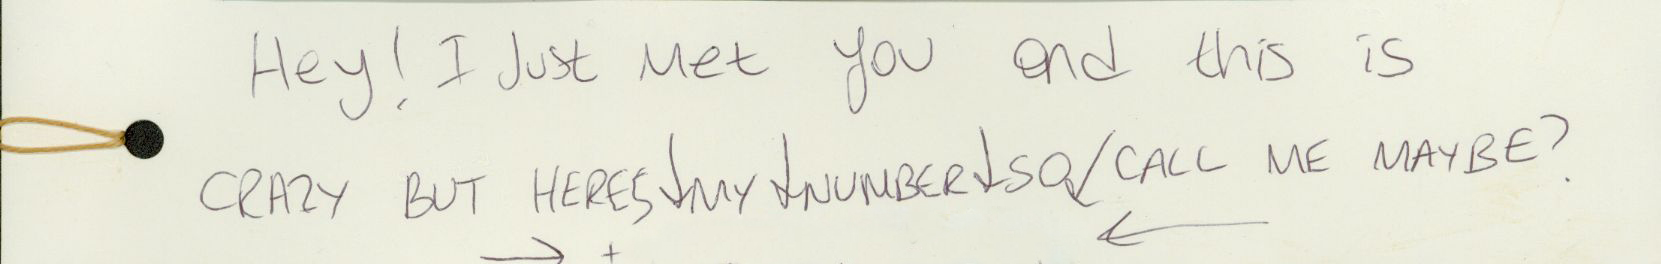 Hey! I Just Met you and this is
CRAZY BUT HERES↓MY↓NUMBER↓SO↙CALL ME MAYBE?
→ + ←